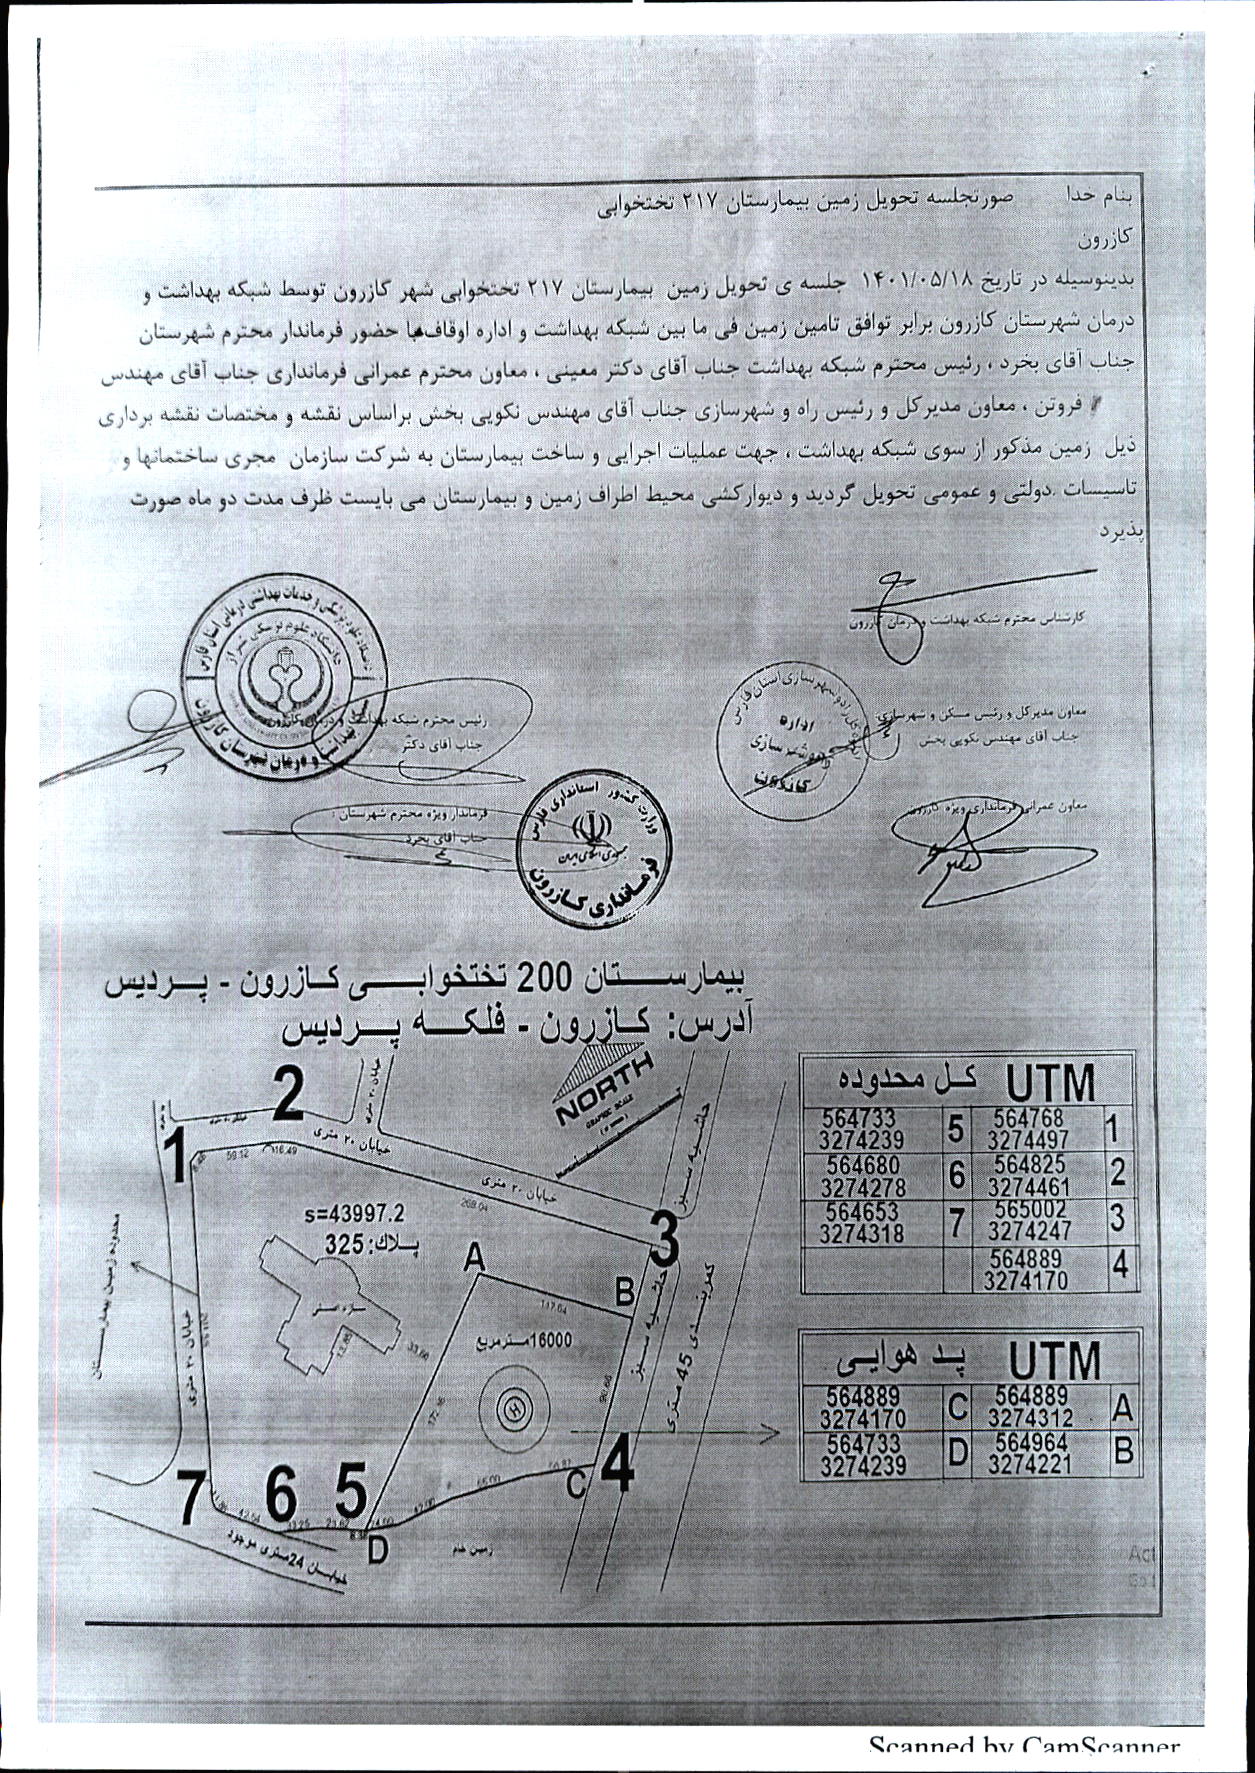 بنام خدا صورتجلسه تحویل زمین بیمارستان ۲۱۷ تختخوابی
کازرون
بدینوسیله در تاریخ ۱۴۰۱/۰۵/۱۸ جلسه ی تحویل زمین بیمارستان ۲۱۷ تختخوابی شهر کازرون توسط شبکه بهداشت و
درمان شهرستان کازرون برابر توافق تامین زمین فی ما بین شبکه بهداشت و اداره اوقاف با حضور فرماندار محترم شهرستان
جناب آقای بخرد ، رئیس محترم شبکه بهداشت جناب آقای دکتر معینی ، معاون محترم عمرانی فرمانداری جناب آقای مهندس
فروتن ، معاون مدیرکل و رئیس راه و شهرسازی جناب آقای مهندس نکویی بخش براساس نقشه و مختصات نقشه برداری
ذیل زمین مذکور از سوی شبکه بهداشت ، جهت عملیات اجرایی و ساخت بیمارستان به شرکت سازمان مجری ساختمانها و
تاسیسات .دولتی و عمومی تحویل گردید و دیوارکشی محیط اطراف زمین و بیمارستان می بایست ظرف مدت دو ماه صورت
پذیرد
کارشناس محترم شبکه بهداشت و درمان کازرون
معاون مدیرکل و رئیس مسکن و شهرسازی
جناب آقای مهندس نکویی بخش
معاون عمرانی فرمانداری ویژه کازرون
رئیس محترم شبکه بهداشت و درمان کازرون
جناب آقای دکتر
فرماندار ویژه محترم شهرستان :
جناب آقای بخرد
وزارت کشور استانداری فارس
جمهوری اسلامی ایران
فرمانداری کازرون
دانشگاه علوم پزشکی شیراز
اداره
راه و شهرسازی
کازرون
بیمارستان 200 تختخوابی کازرون - پردیس
آدرس: کازرون - فلکه پردیس
NORTH
GRAPHIC SCALE
1
2
3
4
5
6
7
A
B
C
D
خیابان ۲۰ متری
خیابان ۲۰ متری
خیابان ۲۰ متری
خیابان ۲۰ متری
59.12
116.49
268.04
s=43997.2
پلاک: 325
سازه اصلی
33.60
117.04
16000مترمربع
H
90.60
حاشیه سبز
حاشیه سبز
کمربندی 45 متری
محدوده زمین بیمارستان
خیابان 24متری موجود
زمین خام
UTM کل محدوده
1 564768 3274497 5 564733 3274239
2 564825 3274461 6 564680 3274278
3 565002 3274247 7 564653 3274318
4 564889 3274170
UTM پد هوایی
A 564889 3274312 C 564889 3274170
B 564964 3274221 D 564733 3274239
Scanned by CamScanner